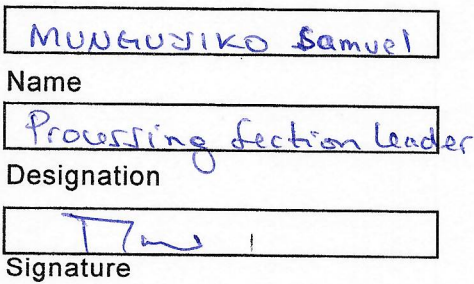 MUNGUJIKO Samuel
Name
Processing Section Leader
Designation
Signature